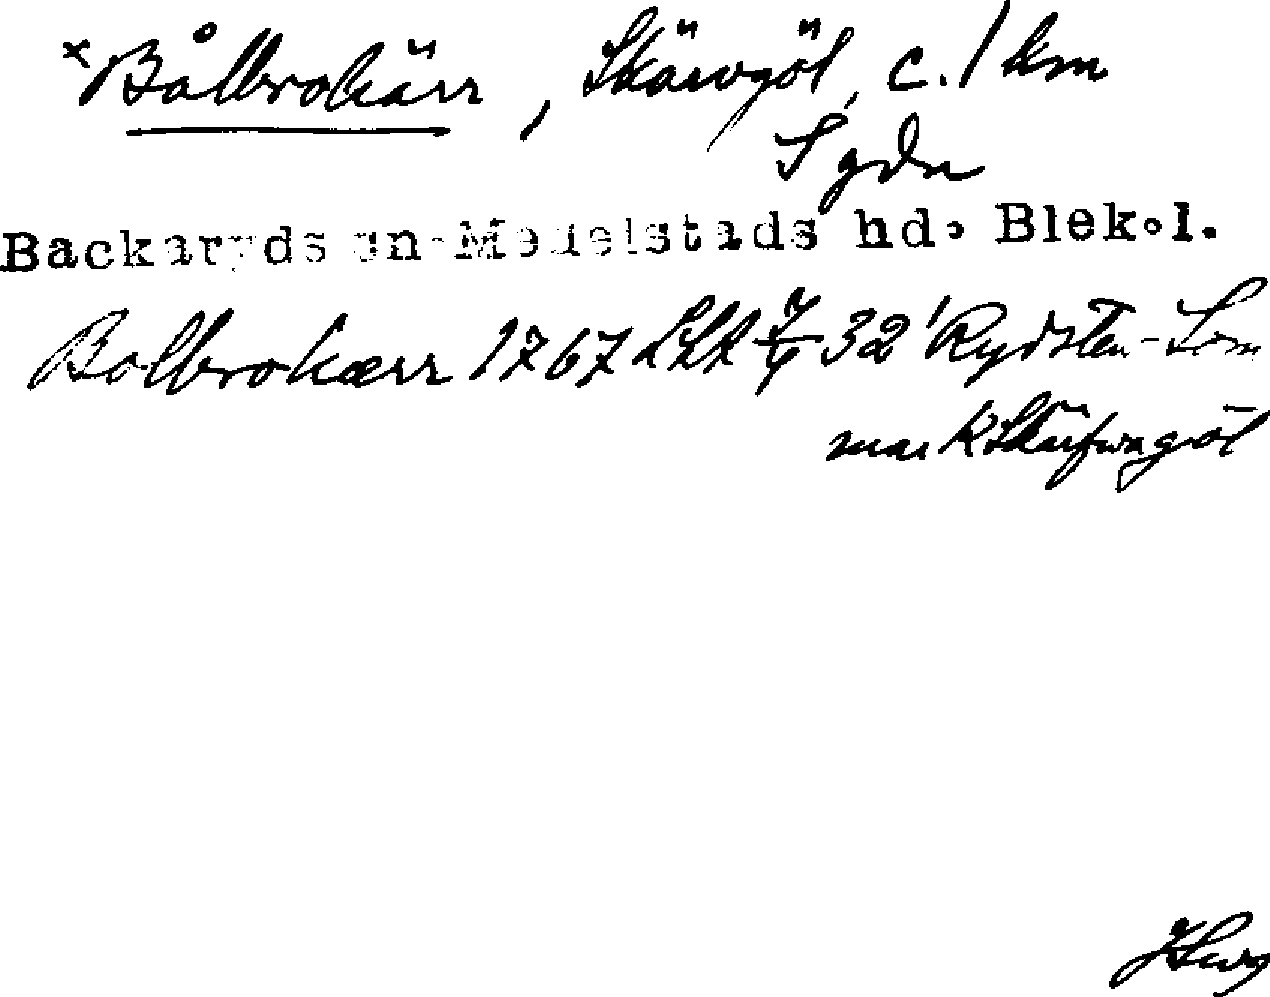 ×Bålbrokärr, Skärvgöl, c. 1 km
S gdn
Backaryds sn. Medelstads hd. Blek.l.
Bolbrokærr 1767 LSA 7/6 32 'Rydsten-Som
mark Skärfwagöl